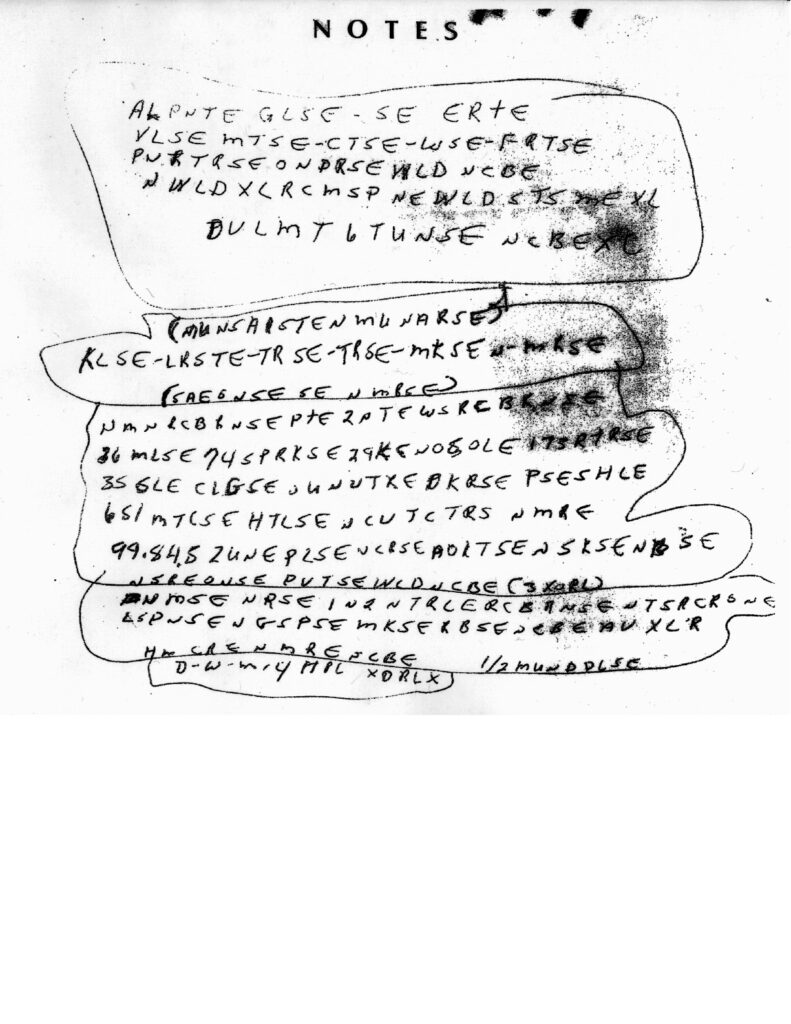 NOTES
ALPNTE GLSE-SE ERTE
VLSE MTSE-CTSE-WSE-FRTSE
PNRTRSEONDRSEWLD NCBE
NWLDXLRCMSP NEWLDSTS ME XL
DULMT 6 TUNSE NCBEXC
(MUNSAISTEN MUNARSE)
KLSE-LRSTE-TRSE-TRSE-MKSEN-MRSE
(SAEGNSESE N MRSE)
NMNRCBRNSE PTE2PTEWSRCBRNSE
36 MLSE 74 SPRKSE 29KENOSOLE 173RTRSE
35 GLE CLGSE UNUTXE DKRSE PSESHLE
651 MTCSE HTLSE NCUTCTRS NMRE
99.84.5 ZUNEPLSE NCRSEAOLTSENSKSENBSE
NSREONSE PUTSEWLDNCBE (3XORL)
NMSE NRSE IN2NTRLERCBRNSE NTSRCRSNE
LSPNSENGSPSE MKSERBSENCBEAUXLR
HM CRENMRENCBE 1/2 MUNDDLSE
D-W-M-4 MPL XDRLX